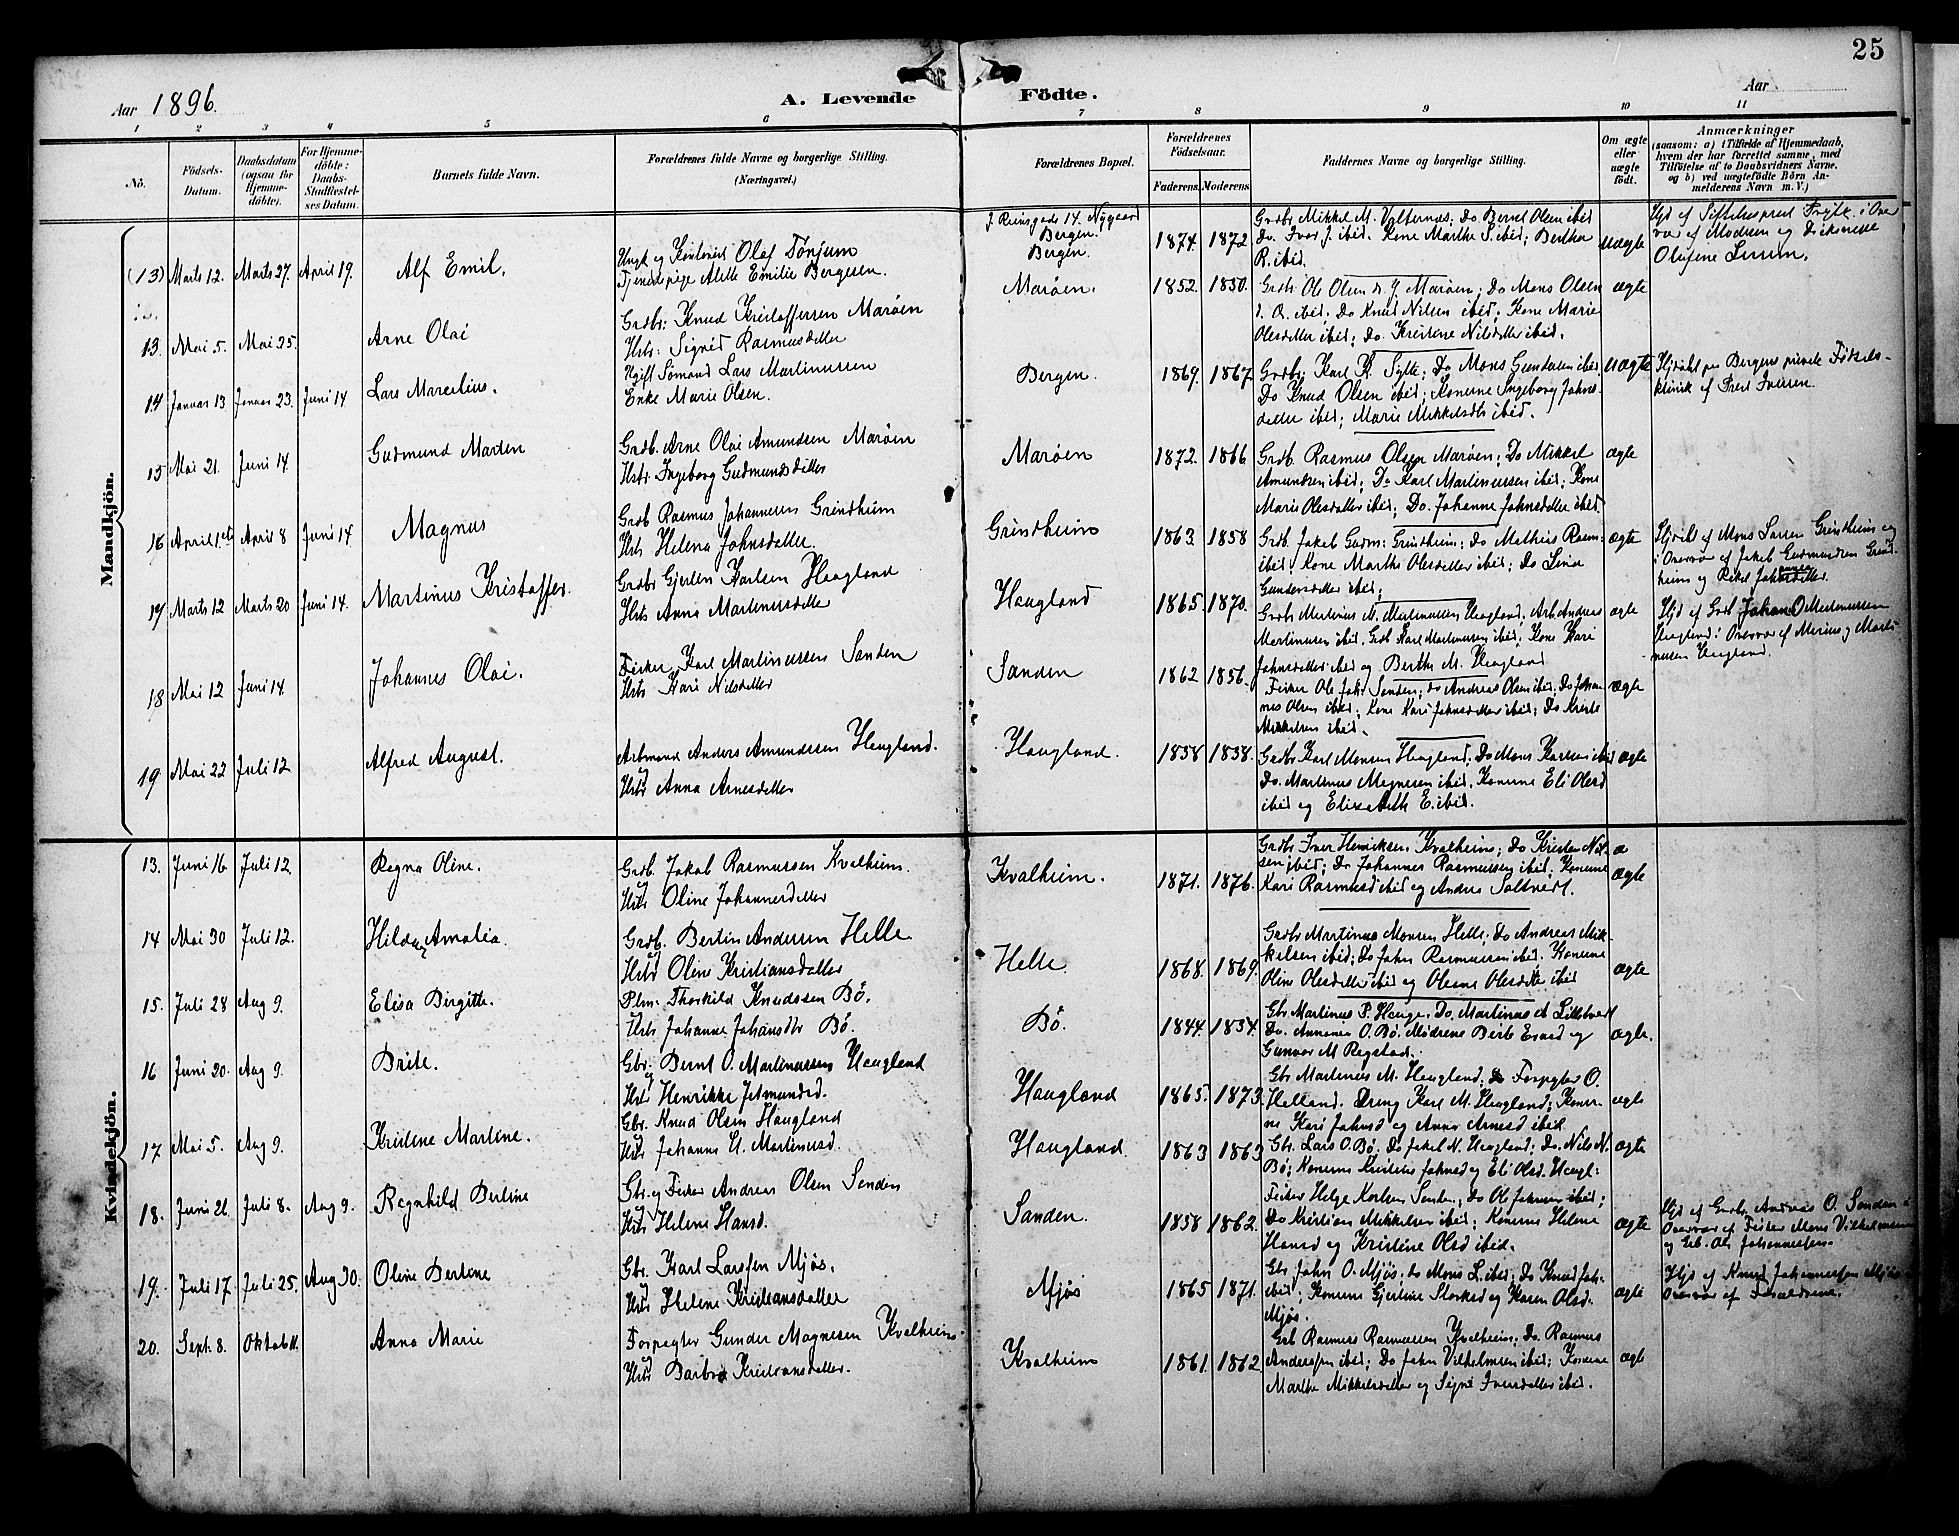 25
Aar 1896. A. Levende Födte. Aar
1 2 3 4 5 6 7 8 9 10 11
No. Födsels-Datum. Daabsdatum (ogsaa for Hjemmedöbte). For Hjemmedöbte: Daabs-Stadfæstelses Datum. Barnets fulde Navn. Forældrenes fulde Navne og borgerlige Stilling. (Næringsvei.) Forældrenes Bopæl. Forældrenes Födselsaar. Faderens. Moderens. Faddernes Navne og borgerlige Stilling. Om ægte eller uægte födt. Anmærkninger (saasom: a) i Tilfælde af Hjemmedaab, hvem der har forrettet samme, med Tilföielse af to Daabsvidners Navne, og b) ved uægtefödte Börn Anmelderens Navn m. V.)
Mandkjön.
(13) Marts 12. Marts 27. April 19. Alf Emil. Ungk og Kontorist Olaf Tönjum
Tjenestepige Alette Emilie Bergesen. Nygaard Bergen. Bergen. 1874. 1872 Grdbr Mikkel M. Valternes; Do Bernt Olsen ibid
Do. Ivar J. ibid. Kone Marthe S. ibid; Berthe
R. ibid. uægte
13. Mai 5. Mai 25. Arne Olai Grdbr: Knud Kristoffersen Maröen
Hstr: Sigrid Rasmusdatter Maröen. 1852. 1850. Grdbr Ole Olsen Maröen; Do Mons Olsen
ibid; Do Knud Nilsen ibid; Kone Marie
Olesdatter ibid; Do. Kristene Nilsdatter ibid. ægte
14 Januar 13 Januar 23. Juni 14 Lars Marcelius. Ugift Sömand Lars Martinussen
Enke Marie Olsen. Bergen. 1869. 1867. Grdbr Karl K. Sylte; Do Mons Gundersen ibid
Do Knud Olsen ibid; Konerne Ingeborg Johns-
datter ibid; Marie Mikkelsdtr ibid. uægte Hjdöbt paa Bergens private Födsels-
klinik af
15 Mai 21. Juni 14. Gudmund Marten Grdb. Arne Olai Amundsen Maröen
Hstr. Ingeborg Gudmundsdatter Maröen 1872. 1866 Grdb. Rasmus Olsen Maröen; Do Mikkel
Amundsen ibid; Do Karl Martinussen ibid; Kone
Marie Olesdatter ibid; Do. Johanne Johnsdatter ibid. ægte
16 April 1ste April 8 Juni 14. Magnus Grdb Rasmus Johannesen Grindheim
Hstr Helena Johnsdatter. Grindheim 1863. 1858 Grdb. Jakob Gudm: Grindheim; Do Mathias Rasm:
ibid; Kone Marthe Olesdatter ibid; Do Lina
Gundersdatter ibid; ægte Hjdöbt af Mons Larsen Grindheim og
i Overvær af Jakob Gudmundsen Grind-
heim og
17 Marts 12 Marts 20 Juni 14. Martinus Kristoffer. Grdbr Gjerten Karlsen Haugland
Hstr Anna Martinusdatter Haugland 1865. 1870. Grdbr Martinus M. Martinussen Haugland; Arb. Andreas
Martinusen ibid. Grdb Karl Martinusen ibid; Kone Kari
Johnsdatter ibid og Berthe M. Haugland ægte Hjd af Grdb Johan O Martinussen
Haugland i Overvær af Marius og Marti-
nusen Haugland.
18 Mai 12 Juni 14. Johannes Olai. Fisker Karl Martinussen Sanden
Hstr Kari Nilsdatter Sanden 1862 1856. Fisker Ole Johs Sanden; do Andreas Olsen ibid; Do Johan-
nes Olsen ibid; Kone Kari Johnsdatter ibid; Do Kirste
Mikkelsen ibid. ægte
19. Mai 22 Juli 12 Alfred August. Arbmand Anders Amundssen Haugland.
Hstr Anna Arnesdatter Haugland. 1858 1858. Grdbr Karl Monsen Haugland; Do Mons Karlsen ibid
Do. Martinus Magnesen ibid. Konerne Eli Olesd
ibid og Elisabeth E. ibid. ægte
Kvindekjön.
13. Juni 16 Juli 12. Ragna Oline. Grdb. Jakob Rasmussen Kvalheim.
Hstr Oline Johannesdatter Kvalheim. 1871. 1876. Grdbr Iver Henriksen Kvalheim; Do Kirsten Nil-
sen ibid; Do Johannes Rasmussen ibid; Konerne
Kari Rasmusd ibid og Andrea Soltvedt. ægte
14 Mai 30 Juli 12. Hilda Amalia. Grdb. Bertin Andersen Helle
Hstr Oline Kristiansdatter Helle. 1868. 1869. Grdbr Martinus Monsen Helle; Do Andreas Mik-
kelsen ibid; Do John Rasmussen ibid, Konerne
Oline Olesdatter ibid og Olesne Olesdatter ibid ægte
15. Juli 28 Aug 9. Elisa Birgitte. Plm. Thorkild Knudssen Bö.
Hstr Johanne Johansdtr Bö. Bö. 1844. 1854. Gbr Martinus P. Hauge. Do. Martinus A Littletvedt
Do. Annanias O. Bö. Mödrene Berte Ernsd og
Gunvor M Regstad. ægte.
16 Juni 20. Aug 9. Brite. Gbr. Bernt O. Martinussen Haugland
Hstr Henrikke Jetmundsd. Haugland 1865. 1873. Gbr Martinus M. Haugland; Do Forpagter O.
Helland. Dreng Karl M. Haugland; Koner-
ne Kari Johnsd og Anna Arnesd ibid. ægte
17 Mai 5. Aug 9. Kristene Martine. Gbr. Knud Olsen Haugland
Hstr Johanne H. Martinusd. Haugland. 1863 1863 Gbr. Lars O. Bö. Do Jakob N. Haugland; Do. Nils N.
Bö; Konerne Kristens Johnsd og Eli Olsd. Haugl: ægte
18. Juni 21 Juli 8. Aug 9. Ragnhild Bertine Gbr. og Fisker Andreas Olsen Sanden
Hstr Helene Hansd. Sanden. 1858 1862. Fisker Helge Karlsen Sanden; Do Ole Johnsen ibid;
Do Kristian Mikkelsen ibid; Konerne Helene
Hansd og Kristine Olsd ibid. ægte Hjd af Gaardbr. Andreas O. Sanden i
Overvær af Fisker Mons Vilhelmsen
og Grb. Ole Johannessen.
19. Juli 17 Juli 25. Aug 30. Oline Bertine Gbr. Karl Larssen Mjös.
Hstr Helene Kristiansdatter Mjös 1865 1871. Gbr John O. Mjös; do Mons L. ibid; Do Knud Joh:
ibid; Konerne Gjertine Storksd og Karen Olsd.
Mjös. ægte Hjd af Knud Johannessen Mjös i
Overvær af Forældrene.
20. Sept. 8. Oktob 11. Anna Marie Forpagter Gunder Magnesen Kvalheim.
Hstr Barbra Kristiansdatter. Kvalheim 1861. 1862 Grb Rasmus Rasmussen Kvalheim; Do. Rasmus
Anderssen ibid; Do John Vilhelmsen ibid; Konerne
Marthe Mikkelsdatter og Signe Iversdatter ibid. ægte